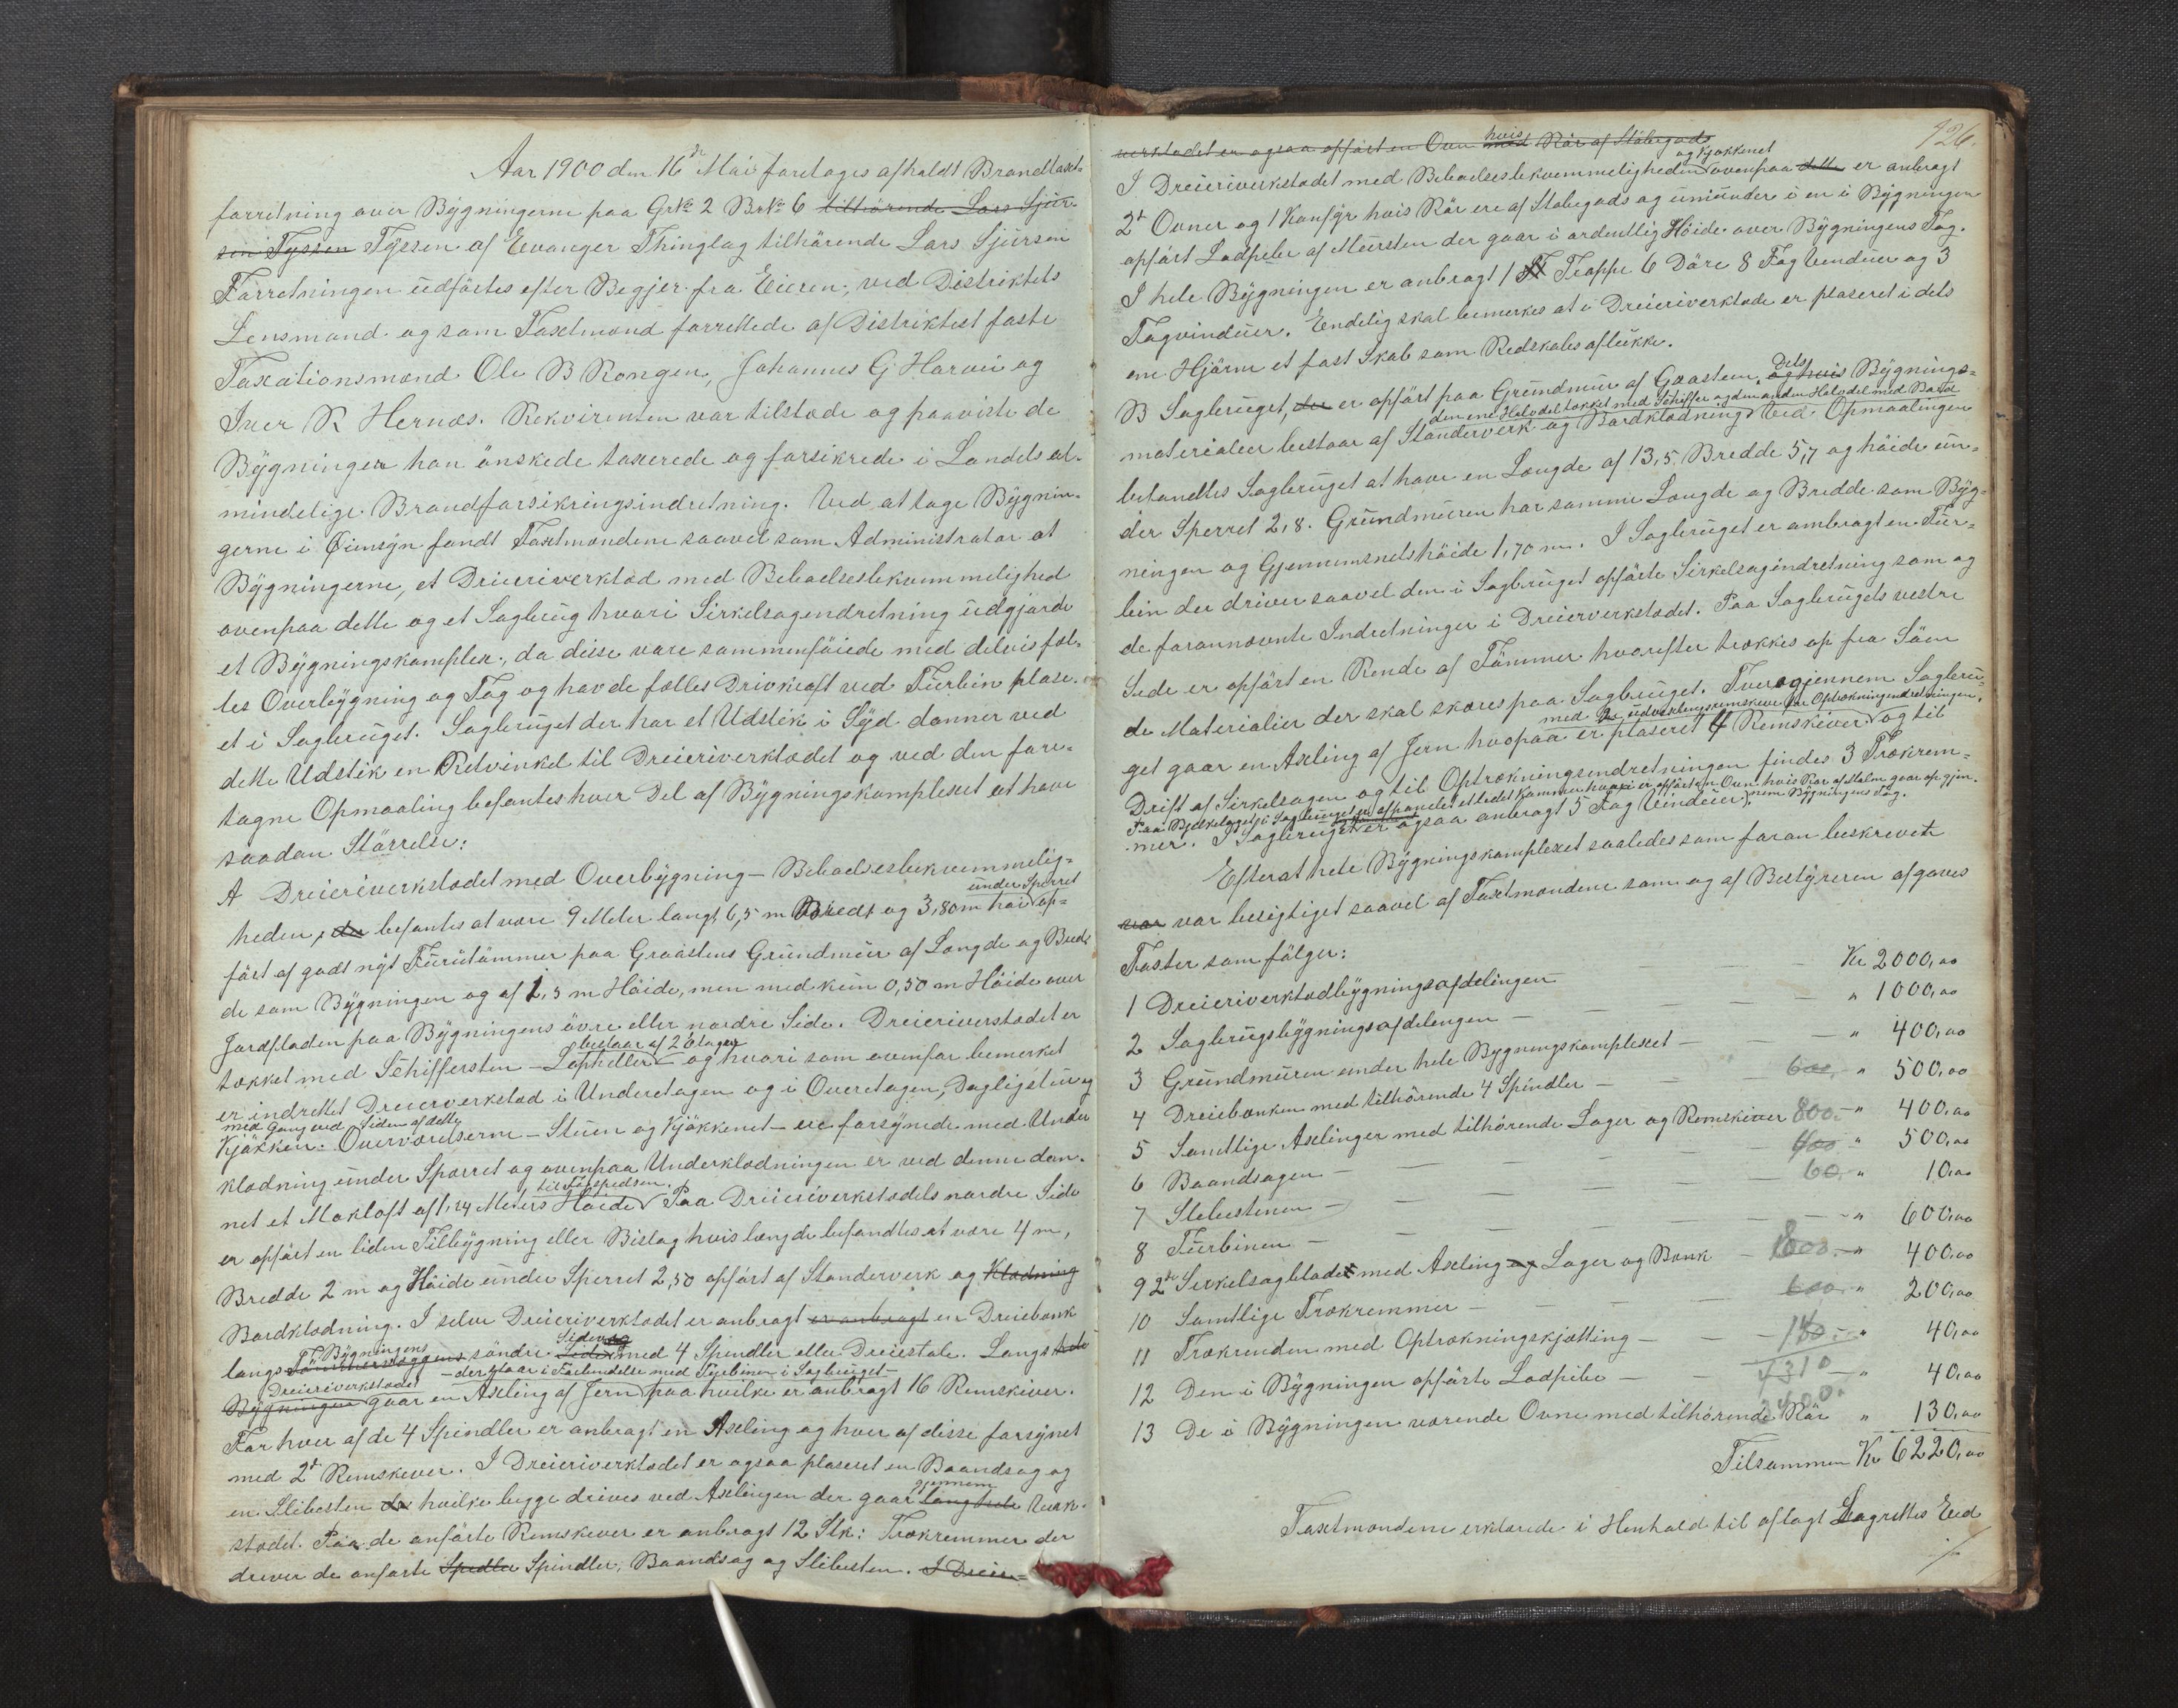 Aar 1900 den 16de Mai foretages afholdt Brandtaxt-
forretning over Bÿgningerne paa Grk 2 Brk 6 tilhørende Lars Sjür
sen Tyssen Tÿssen af Evanger Thinglag tilhörende Lars Sjürsen
Forretningen üdförtes efter Begjer fra Eieren, ved Distriktets
Lensmand og som Taxtmænd forrettede af Distriktest faste
Taxationsmænd Ole B Rongen, Johannes G Horvei og
Iver R Hernæs. Rekvirenten var tilstæde og paaviste de
Bÿgninger han önskede taxerede og forsikrede i Landets al-
mindelige Brandforsikringsindretning. Ved at tage Bÿgnin-
gerne i Øiensÿn fandt Taxtmændene saavel som Administrator at
Bÿgningerne, et Dreieriverkstad med Beboelsesbekvemmelighed
ovenpaa dette og et Sagbrüg hvori Sirkelsagendretning üdgjorde
et Bÿgningskompleks, da disse vare sammenföiede med delvis fæl-
les Overbÿgning og Tag og havde fælles Drivkraft ved Türbin plase-
et i Sagbrüget. Sagbrüget der har et Udstik i Sÿd danner ved
dette Udstik en Retvinkel til Dreieriverkstadet og ved den fore-
tagne Opmaaling befantes hver Del af Bÿgningskomplekset at have
saadan Störrelse:
A Dreieriverkstædet med Overbÿgning - Beboelsesbekvemmelig-
under Sperret
heden, der befantes at være 9 Meter langt, 6,5 m Bredt og 3,80 m høi op-
fört af godt nÿt Furütömmer paa Graastens Grundmür af Længde og Bred-
de som Bÿgningen og af 1,5 m Höide, men med kün 0,50 m Höide over
Jordfladen paa Bÿgningens övre eller nordre Side. Dreieriverstædet er
bestaar af 2 Etager
tækket med Schiffersten - Lopheller - og hvori som ovenfor bemerket
er indrettet Dreierverkstad i Underetagen og i Overetagen, Dagligstue og
med Gang ved Siden af dette
Kjökken. Overværelserne - Stüen og Kjökkenet - ere forsÿnede med Under
klædning ünder Sperret og ovenpaa Underklædningen er ved denne dan-
til Tagspidsen.
net et Mörkloft af 1,24 Meters Höide Paa Dreieriverkstædets nordre Side
er opfört en liden Tilbÿgning eller Bislag hvis længde befandtes at være 4 m,
Bredde 2 m og Höide under Sperret 2,50 opfört af Standerverk og Klædning
Bordklædning. I selve Dreieriverkstædet er anbragt er anbragt en Dreiebænk
Bÿgningens Sidevæg
langs Tömmervæggens söndre Side med 4 Spindler eller Dreiestole. Langs hele
Dreieriverkstædet - der staar i Forbindelse med Türbinen i Sagbrüget -
Bÿgningen gaar en Axling af Jern paa hvilke er anbragt 16 Remskiver.
For hver af de 4 Spindler er anbragt en Axling og hver af disse forsÿnet
med 2de Remskiver. I Dreieriverkstædet er ogsaa plaseret en Baandsag og
gjennem
en Slibesten der hvilke begge drives ved Axlingen der gaar langs hele Verk-
stædet. Paa de anförte Remskiver er anbragt 12 Stk: Trækremmer der
driver de anförte Spedler Spindler, Baandsag og Slibesten. I Dreier-
126.
hvis
verkstædet er ogsaa opfört en Ovn med Rör af Stöbegods
og Kjökkenet
I Dreieriverkstædet med Beboelsesbekvemmeligheden ovenpaa dette er anbragt
2de Ovner og 1 Komfÿr hvis Rör ere af Stöbegods og ümünder i en i Bÿgningen
opfört Ladpibe af Mürsten der gaar i ordentlig Höide over Bÿgningens Tag.
I hele Bÿgningen er anbragt 1 Trappe 6 Döre 8 Fag Vindüer og 3
Tagvindüer. Endelig skal bemerkes at i Dreieriverkstæde er plaseret i dets
ene Hjörne et fast Skab som Redskabsaflükke.
Dets
B Sagbrüget, der er opfört paa Grundmür af Graasten, og hvis Bÿgnings-
den ene Halvdel tækket med Schiffer og den anden Halvdel med Bord
materialier bestaar af Standerverk og Bordklædning Ved Opmaalingen
befandtes Sagbrüget at have en Længde af 13,5, Bredde 5,7 og höide ün-
der Sperret 2,8. Grundmüren har samme Længde og Bredde som Bÿg-
ningen og Gjennemsnetshöide 1,70 m. I Sagbrüget er ambragt en Tür-
bin der driver saavel den i Sagbrüget opförte Sirkelsagindretning som og
de forannævnte Indretninger i Dreierverkstædet. Paa Sagbrügets vestre
Side er opfört en Rende af Tömmer hvorefter trækkes op fra Söen
de Materialier der skal skæres paa Sagbrüget. Tver gjennem Sagbrü-
med üdvexlingsremskive for Optrækningendretningen,
get gaar en Axling af Jern hvopaa er plaseret 4 Remskiver og til
Drift af Sirkelsagen og til Optrækningsendretningen findes 3 Trækrem-
Paa Bjelkelaget i Sagbrüget er afpanelet et lidet Kammer hvori er opfört en Ovn hvis Rör af Malm gaar op gjen-
mer. I Sagbrüget er ogsaa anbragt 5 Fag Vindüer nem Bÿgningens Tag.
Efterat hele Bÿgningskomplekset saaledes som foran beskrevet
var var besigtiget saavel af Taxtmændene som og af Bestÿreren afgaves
Taxter som fölger:
1 Dreieriverkstædbÿgningsafdelingen — Kr 2000,00
2 Sagbrügsbÿgningsafdelengen — " 1000,00
3 Gründmüren ünder hele Bÿgningskomplekset — " 400,00
4 Dreiebænken med tilhörende 4 Spindler — 600,- " 500,00
5 Samtlige Axlinger med tilhörende Lager og Remskiver 800,- " 400,00
6 Baandsagen — 400 " 500,00
7 Slebestenen — 60,- " 10,00
8 Türbinen — " 600,00
9 2de Serkelsagblader med Axling og Lager og Bænk — " 400,00
10 Samtlige Trækremmer — 600,- " 200,00
11 Trækrenden med Optrækningskjætting — " 40,00
12 Den i Bÿgningen opförte Ladpibe — " 40,00
13 De i Bÿgningen værende Ovne med tilhörende Rör " 130,00
Tilsammen Kr 6220,00
Taxtmændene erklærede i Henhold til aflagt Lagrettes Eed